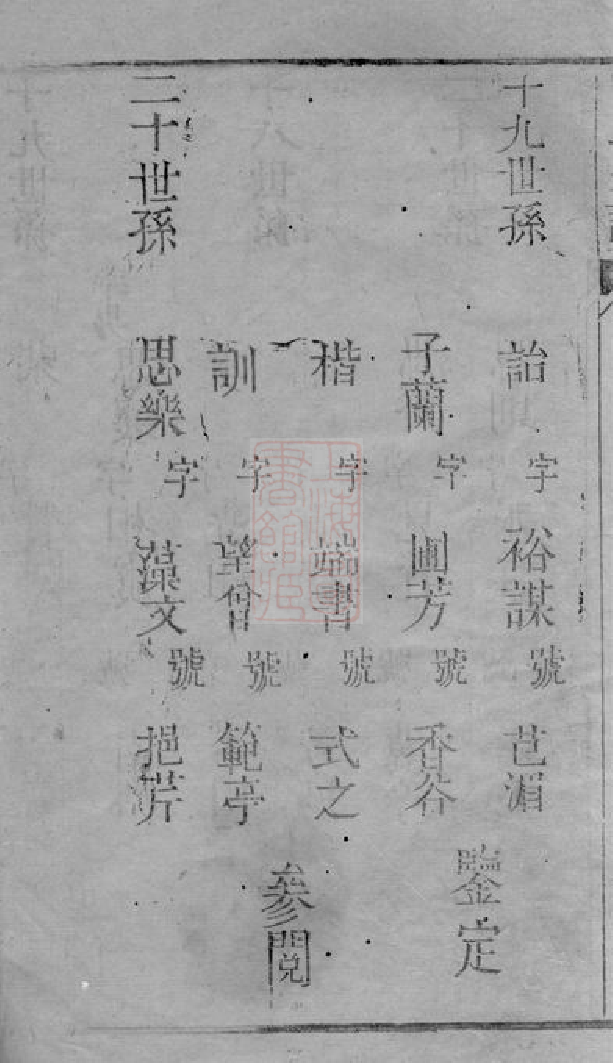 十九世孫 詒 字 裕謀 號 芑湄
子蘭 字 圃芳 號 香谷
鑒定
楷 字 端書 號 式之
訓 字 望曾 號 範亭
參閱
二十世孫 思樂 字 藻文 號 挹芹
上海圖書館藏